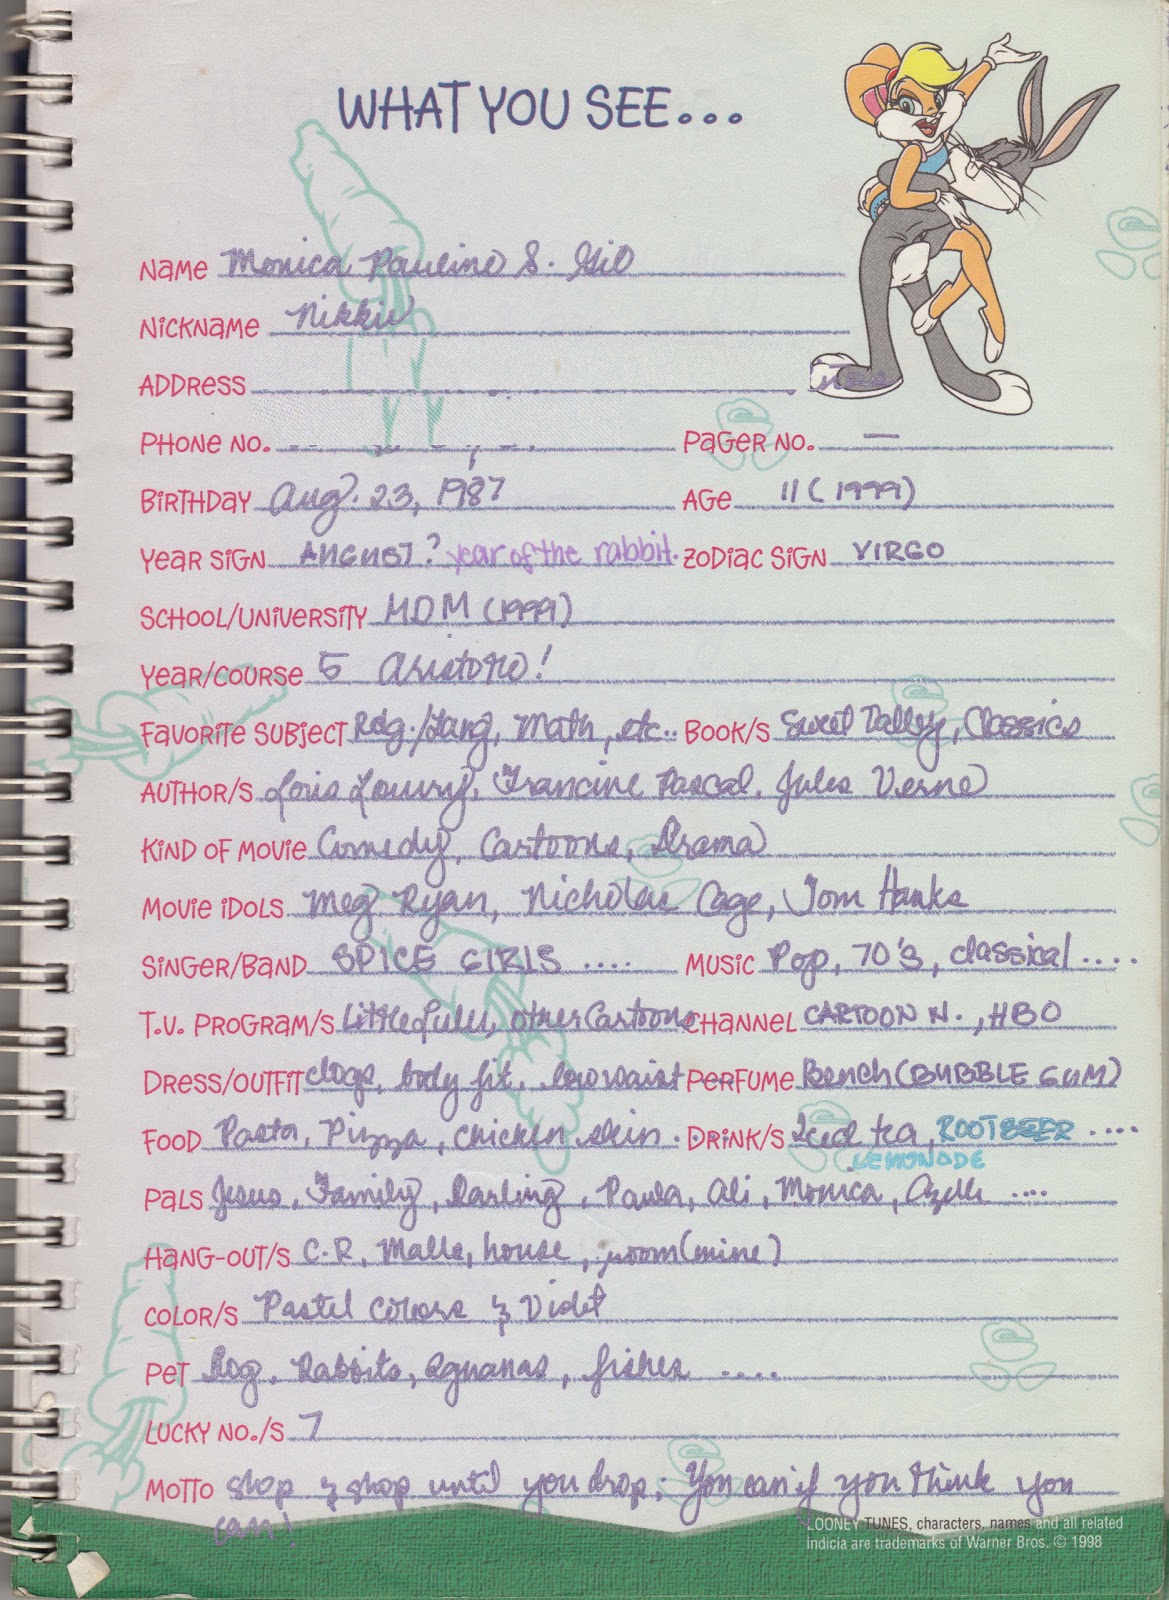 WHAT YOU SEE...
NAME Monica Pauline S. Gil
NICKNAME Nikkie
ADDRESS
PHONE NO. PAGER NO. —
BIRTHDAY Aug. 23, 1987 AGE 11 (1999)
YEAR SIGN AUGUST? year of the rabbit. ZODIAC SIGN VIRGO
SCHOOL/UNIVERSITY MDM (1999)
YEAR/COURSE 5 Aristotle!
FAVORITE SUBJECT Rdg./Lang, Math, etc.. BOOK/S Sweet Valley, Classics
AUTHOR/S Loris Lowry, Francine Pascal, Jules Verne
KIND OF MOVIE Comedy, Cartoons, Drama
MOVIE IDOLS Meg Ryan, Nicholas Cage, Tom Hanks
SINGER/BAND SPICE GIRLS ..... MUSIC Pop, 70's, classical ....
T.V. PROGRAM/S Little Lulu, other Cartoons CHANNEL CARTOON N., HBO
DRESS/OUTFIT clogs, body fit, low waist PERFUME Bench (BUBBLE GUM)
FOOD Pasta, Pizza, chicken skin. DRINK/S Iced tea, ROOTBEER ....
LEMONADE
PALS Jesus, Family, Darling, Paula, Ali, Monica, Azelle ....
HANG-OUT/S C.R, Malls, house, room (mine)
COLOR/S Pastel Colors & Violet
PET Dog, Rabbits, Iguanas, fishes ....
LUCKY NO./S 7
MOTTO Shop & shop until you drop; You can if you think you
can!
LOONEY TUNES, characters, names and all related
indicia are trademarks of Warner Bros. © 1998